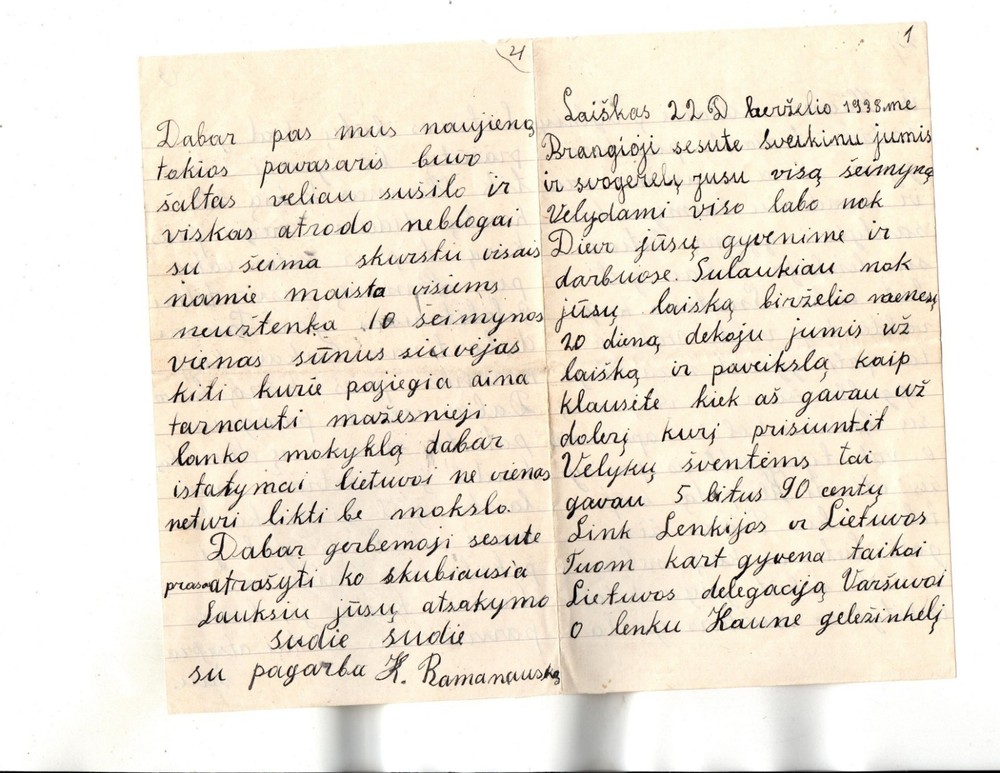 4
Dabar pas mus naujieną
tokios pavasaris buvo
šaltas veliau sušilo ir
viskas atrodo neblogai
su šeima skurstu visais
namie maista visiems
neužtenka. 10 šeimynos
vienas sūnus siuvėjas
kiti kurie pajiegia aina
tarnauti mažesnieji
lanko mokyklą dabar
istatymai lietuvoi ne vienas
neturi likti be mokslo.
Dabar gerbemoji sesute
prasau atrašyti ko skubiausia
Lauksiu jūsų atsakymo
sudie sudie
su pagarba K. Ramanauską
1
Laiškas 22 D berželio 1938 me
Brangioji sesute sveikinu jumis
ir svogerelį jusu visą šeimyną
Velydami viso labo nok
Dievo jūsų gyvenime ir
darbuose. Sulaukiau nok
jūsų laiską birželio menesį
20 dieną dekoju jumis už
laišką ir paveikslą kaip
klausete kiek aš gavau už
dolerį kurį prisiuntėt
Velykų šventėms tai
gavau 5 litus 90 centų
Link Lenkijos ir Lietuvos
Tuom kart gyvena taikoi
Lietuvos delegaciją Varšuvoi
o lenku Kaune geležinkėlį